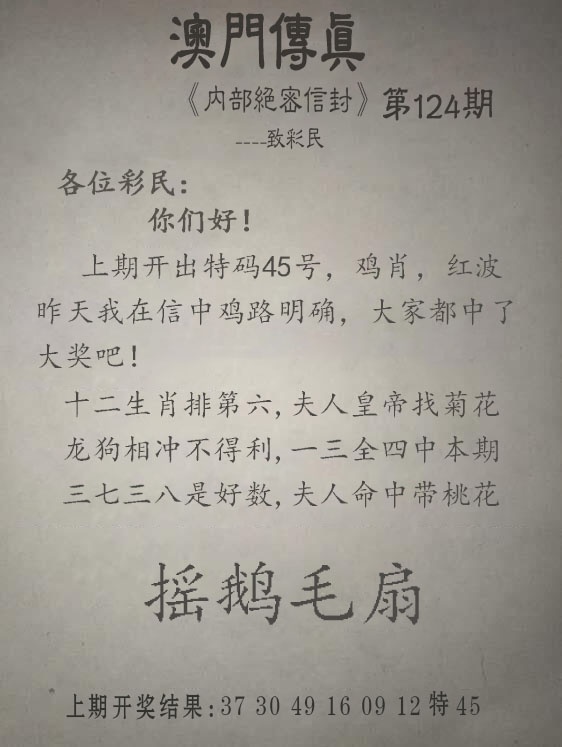 澳門傳眞
《内部絕密信封》第124期
----致彩民
各位彩民：
你们好！
上期开出特码45号，鸡肖，红波
昨天我在信中鸡路明确，大家都中了
大奖吧！
十二生肖排第六,夫人皇帝找菊花
龙狗相冲不得利,一三全四中本期
三七三八是好数,夫人命中带桃花
摇鹅毛扇
上期开奖结果:37 30 49 16 09 12 特 45